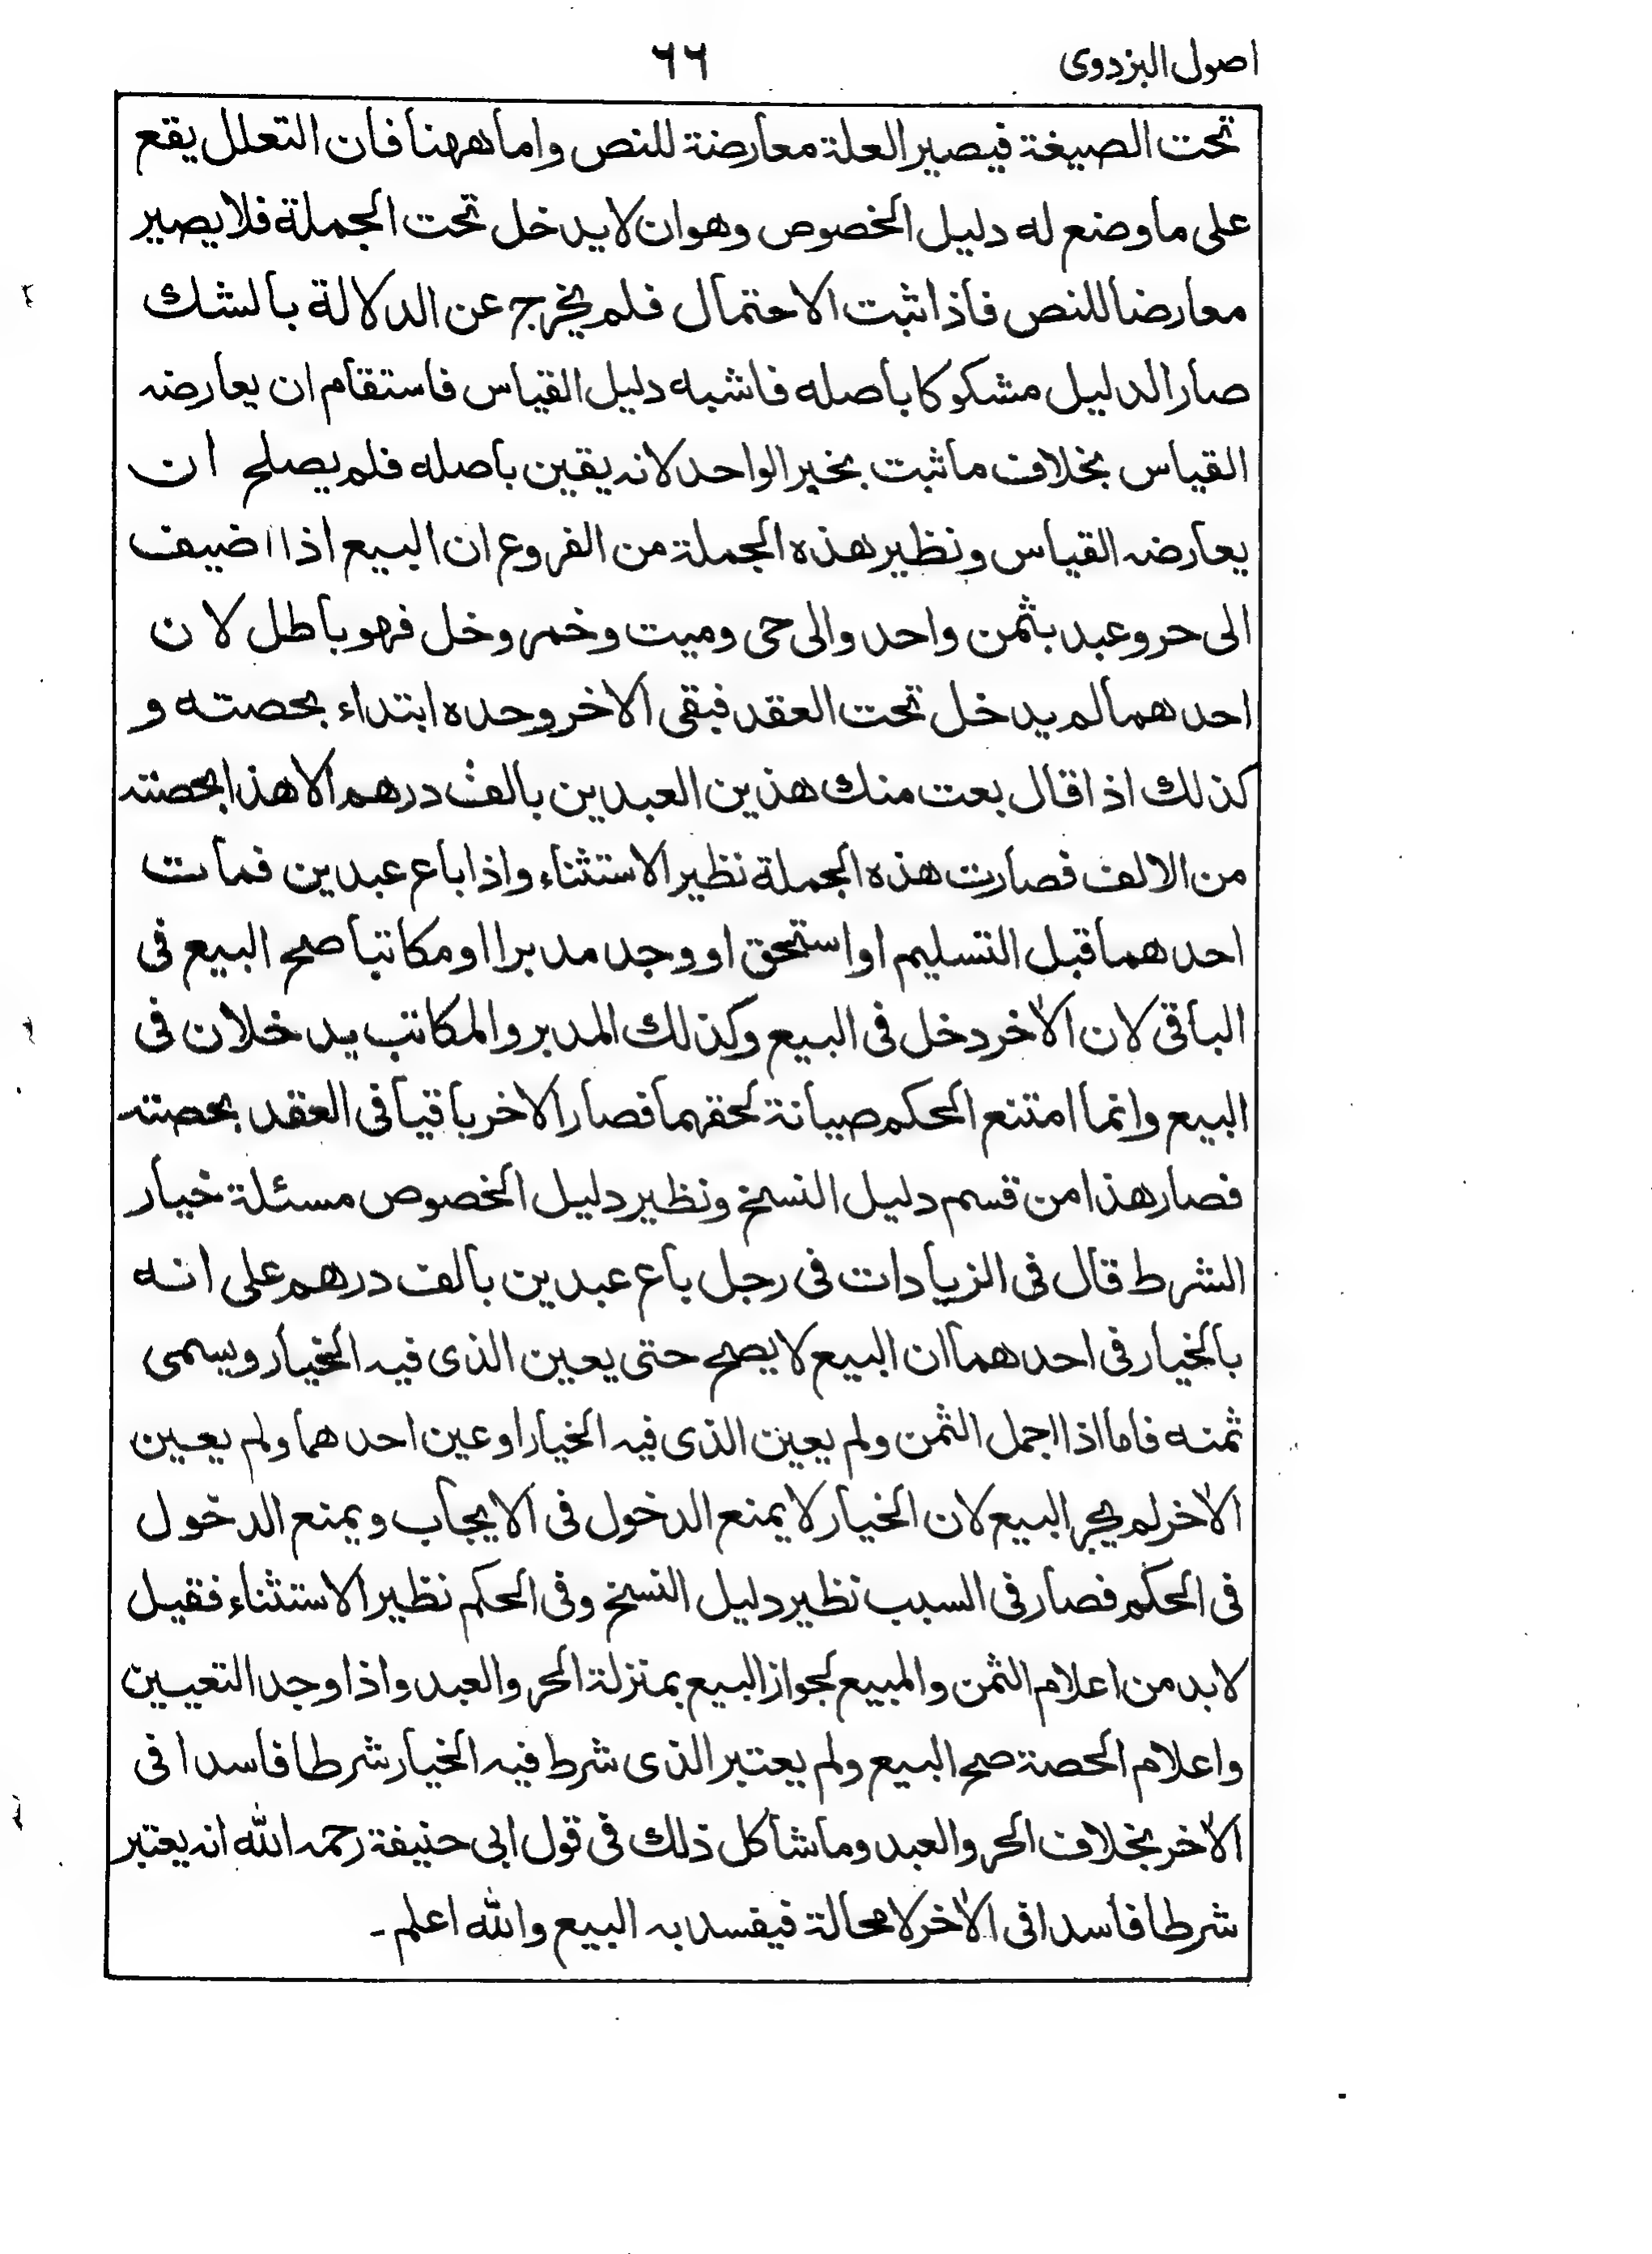 اصول البزدوى
٦٦
تحت الصيغة فيصير العلة معارضة للنص واما ههنا فان التعلل يقع
على ما وضع له دليل الخصوص وهو ان لا يدخل تحت الجملة فلا يصير
معارضا للنص فاذا ثبت الاحتمال فلم يخرج عن الدلالة بالشك
صار الدليل مشكوكا باصله فاشبه دليل القياس فاستقام ان يعارضه
القياس بخلاف ما ثبت بخبر الواحد لانه يقين باصله فلم يصلح ان
يعارضه القياس ونظير هذه الجملة من الفروع ان البيع اذا اضيف
الى حر وعبد بثمن واحد والى حى وميت وخمر وخل فهو باطل لان
احدهما لم يدخل تحت العقد فبقى الاخر وحده ابتداء بحصته و
كذلك اذا قال بعت منك هذين العبدين بالف درهم الا هذا بحصته
من الالف فصارت هذه الجملة نظير الاستثناء واذا باع عبدين فمات
احدهما قبل التسليم او استحق او وجد مدبرا او مكاتبا صح البيع فى
الباقى لان الاٰخر دخل فى البيع وكذلك المدبر والمكاتب يدخلان فى
البيع وانما امتنع الحكم صيانة لحقهما فصار الاخر باقيا فى العقد بحصته
فصار هذا من قسم دليل النسخ ونظير دليل الخصوص مسئلة خيار
الشرط قال فى الزيادات فى رجل باع عبدين بالف درهم على انه
بالخيار فى احدهما ان البيع لا يصح حتى يعين الذى فيه الخيار ويسمى
ثمنه فاما اذا اجمل الثمن ولم يعين الذى فيه الخيار او عين احدهما ولم يعين
الاٰخر لم يجز البيع لان الخيار لا يمنع الدخول فى الايجاب ويمنع الدخول
فى الحكم فصار فى السبب نظير دليل النسخ وفى الحكم نظير الاستثناء فقيل
لابد من اعلام الثمن والمبيع لجواز البيع بمنزلة الحر والعبد واذا وجد التعيين
واعلام الحصة صح البيع ولم يعتبر الذى شرط فيه الخيار شرطا فاسدا فى
الاٰخر بخلاف الحر والعبد وما شاكل ذلك فى قول ابى حنيفة رحمه الله انه يعتبر
شرطا فاسدا فى الاٰخر لا محالة فيفسد به البيع والله اعلم ـ